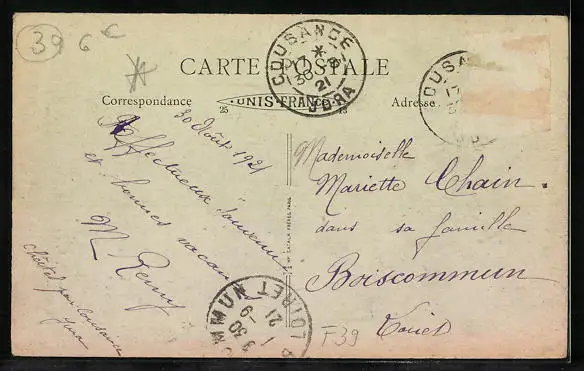 39 6 €
CARTE POSTALE
Correspondance
25
UNIS-FRANCE
13
Adresse
COUSANCE
17
30-8
21
JURA
30 Août 1921
Affectueux souvenir
et bonnes vacances
M Remy
Mademoiselle
Mariette Chain.
dans sa famille
Boiscommun
Loiret
LOIRET
9 30
1-9
21
F39
Jura